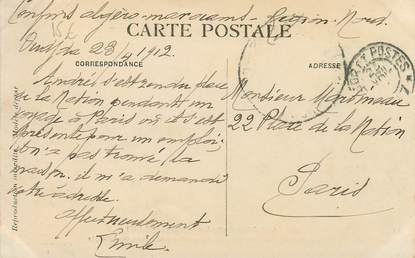 Confins algéro-marocains - Région Nord
CARTE POSTALE
Oudjda 23/4 1912
CORRESPONDANCE
ADRESSE
TRESOR ET POSTES
André s'est rendu place
de la Nation pendant un
voyage à Paris où il s'est
présenté pour un emploi.
Il n'a pas trouvé la
maison. il m'a demandé
votre adresse.
Affectueusement
Emile
Monsieur
22 Place de la Nation
Paris
Reproduction interdite